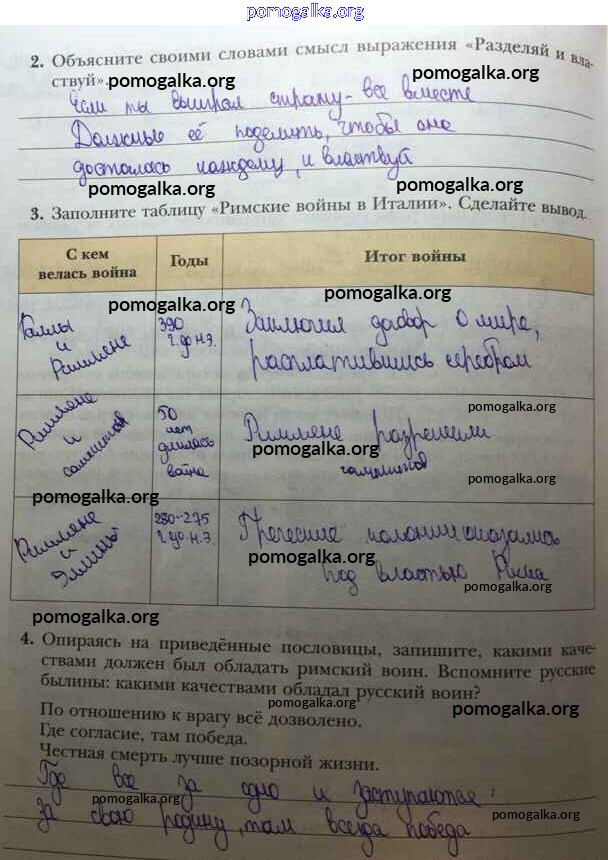 pomogalka.org
2. Объясните своими словами смысл выражения «Разделяй и вла-
ствуй».
pomogalka.org
pomogalka.org
Если ты выиграл страну - все вместе
Должные её поделить, чтобы она
pomogalka.org
досталась каждому, и властвуй
pomogalka.org
pomogalka.org
3. Заполните таблицу «Римские войны в Италии». Сделайте вывод.
С кем велась война
Годы
Итог войны
pomogalka.org
pomogalka.org
Галлы и Римляне
390 г. до н.э.
Заключил договор о мире,
расплатившись серебром
pomogalka.org
Римляне и самнитов
50 лет длилась война
Римляне разрешили
pomogalka.org
самнитов
pomogalka.org
pomogalka.org
Римляне и Эллины
280-275 г. до н.э.
Греческие колонии оказались
pomogalka.org
под властью Рима
pomogalka.org
pomogalka.org
4. Опираясь на приведённые пословицы, запишите, какими каче-
ствами должен был обладать римский воин. Вспомните русские
былины: какими качествами обладал русский воин?
pomogalka.org
pomogalka.org
По отношению к врагу всё дозволено.
Где согласие, там победа.
Честная смерть лучше позорной жизни.
Где все за одно и заступаются
pomogalka.org
за свою родину, там всегда победа
pomogalka.org